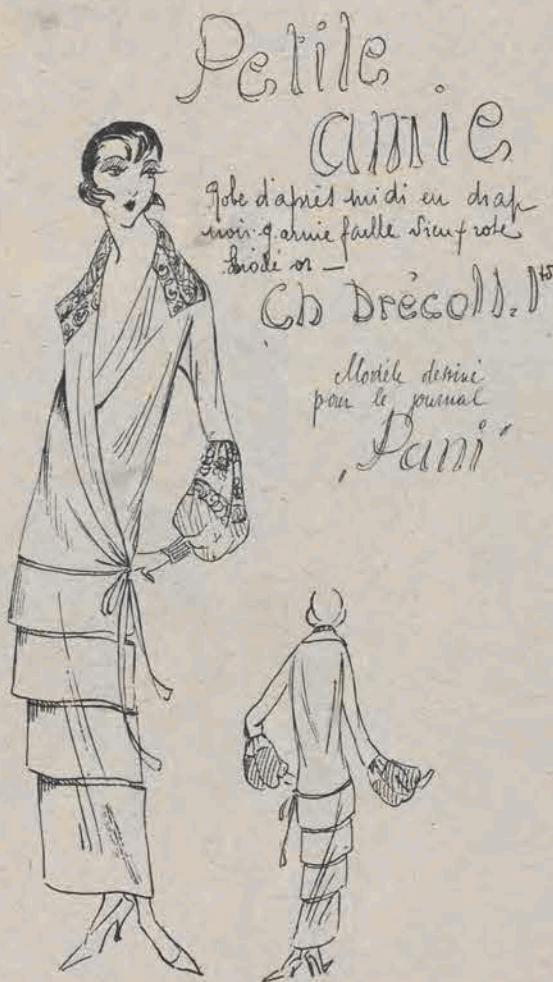 Petite
amie
Robe d'après midi en drap
noir garnie faille vieux rose
brodé or —
Ch Drécoll. Ltd
Modèle dessiné
pour le journal
"Pani"